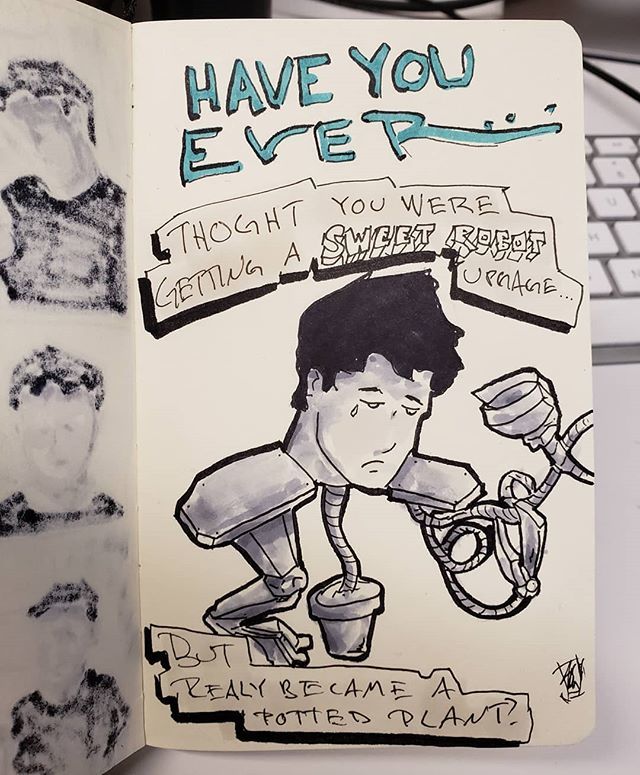 HAVE YOU
EVER...
THOGHT YOU WERE
GETTING A SWEET ROBOT
UPRAGE...
BUT
REALY BECAME A
POTTED PLANT?